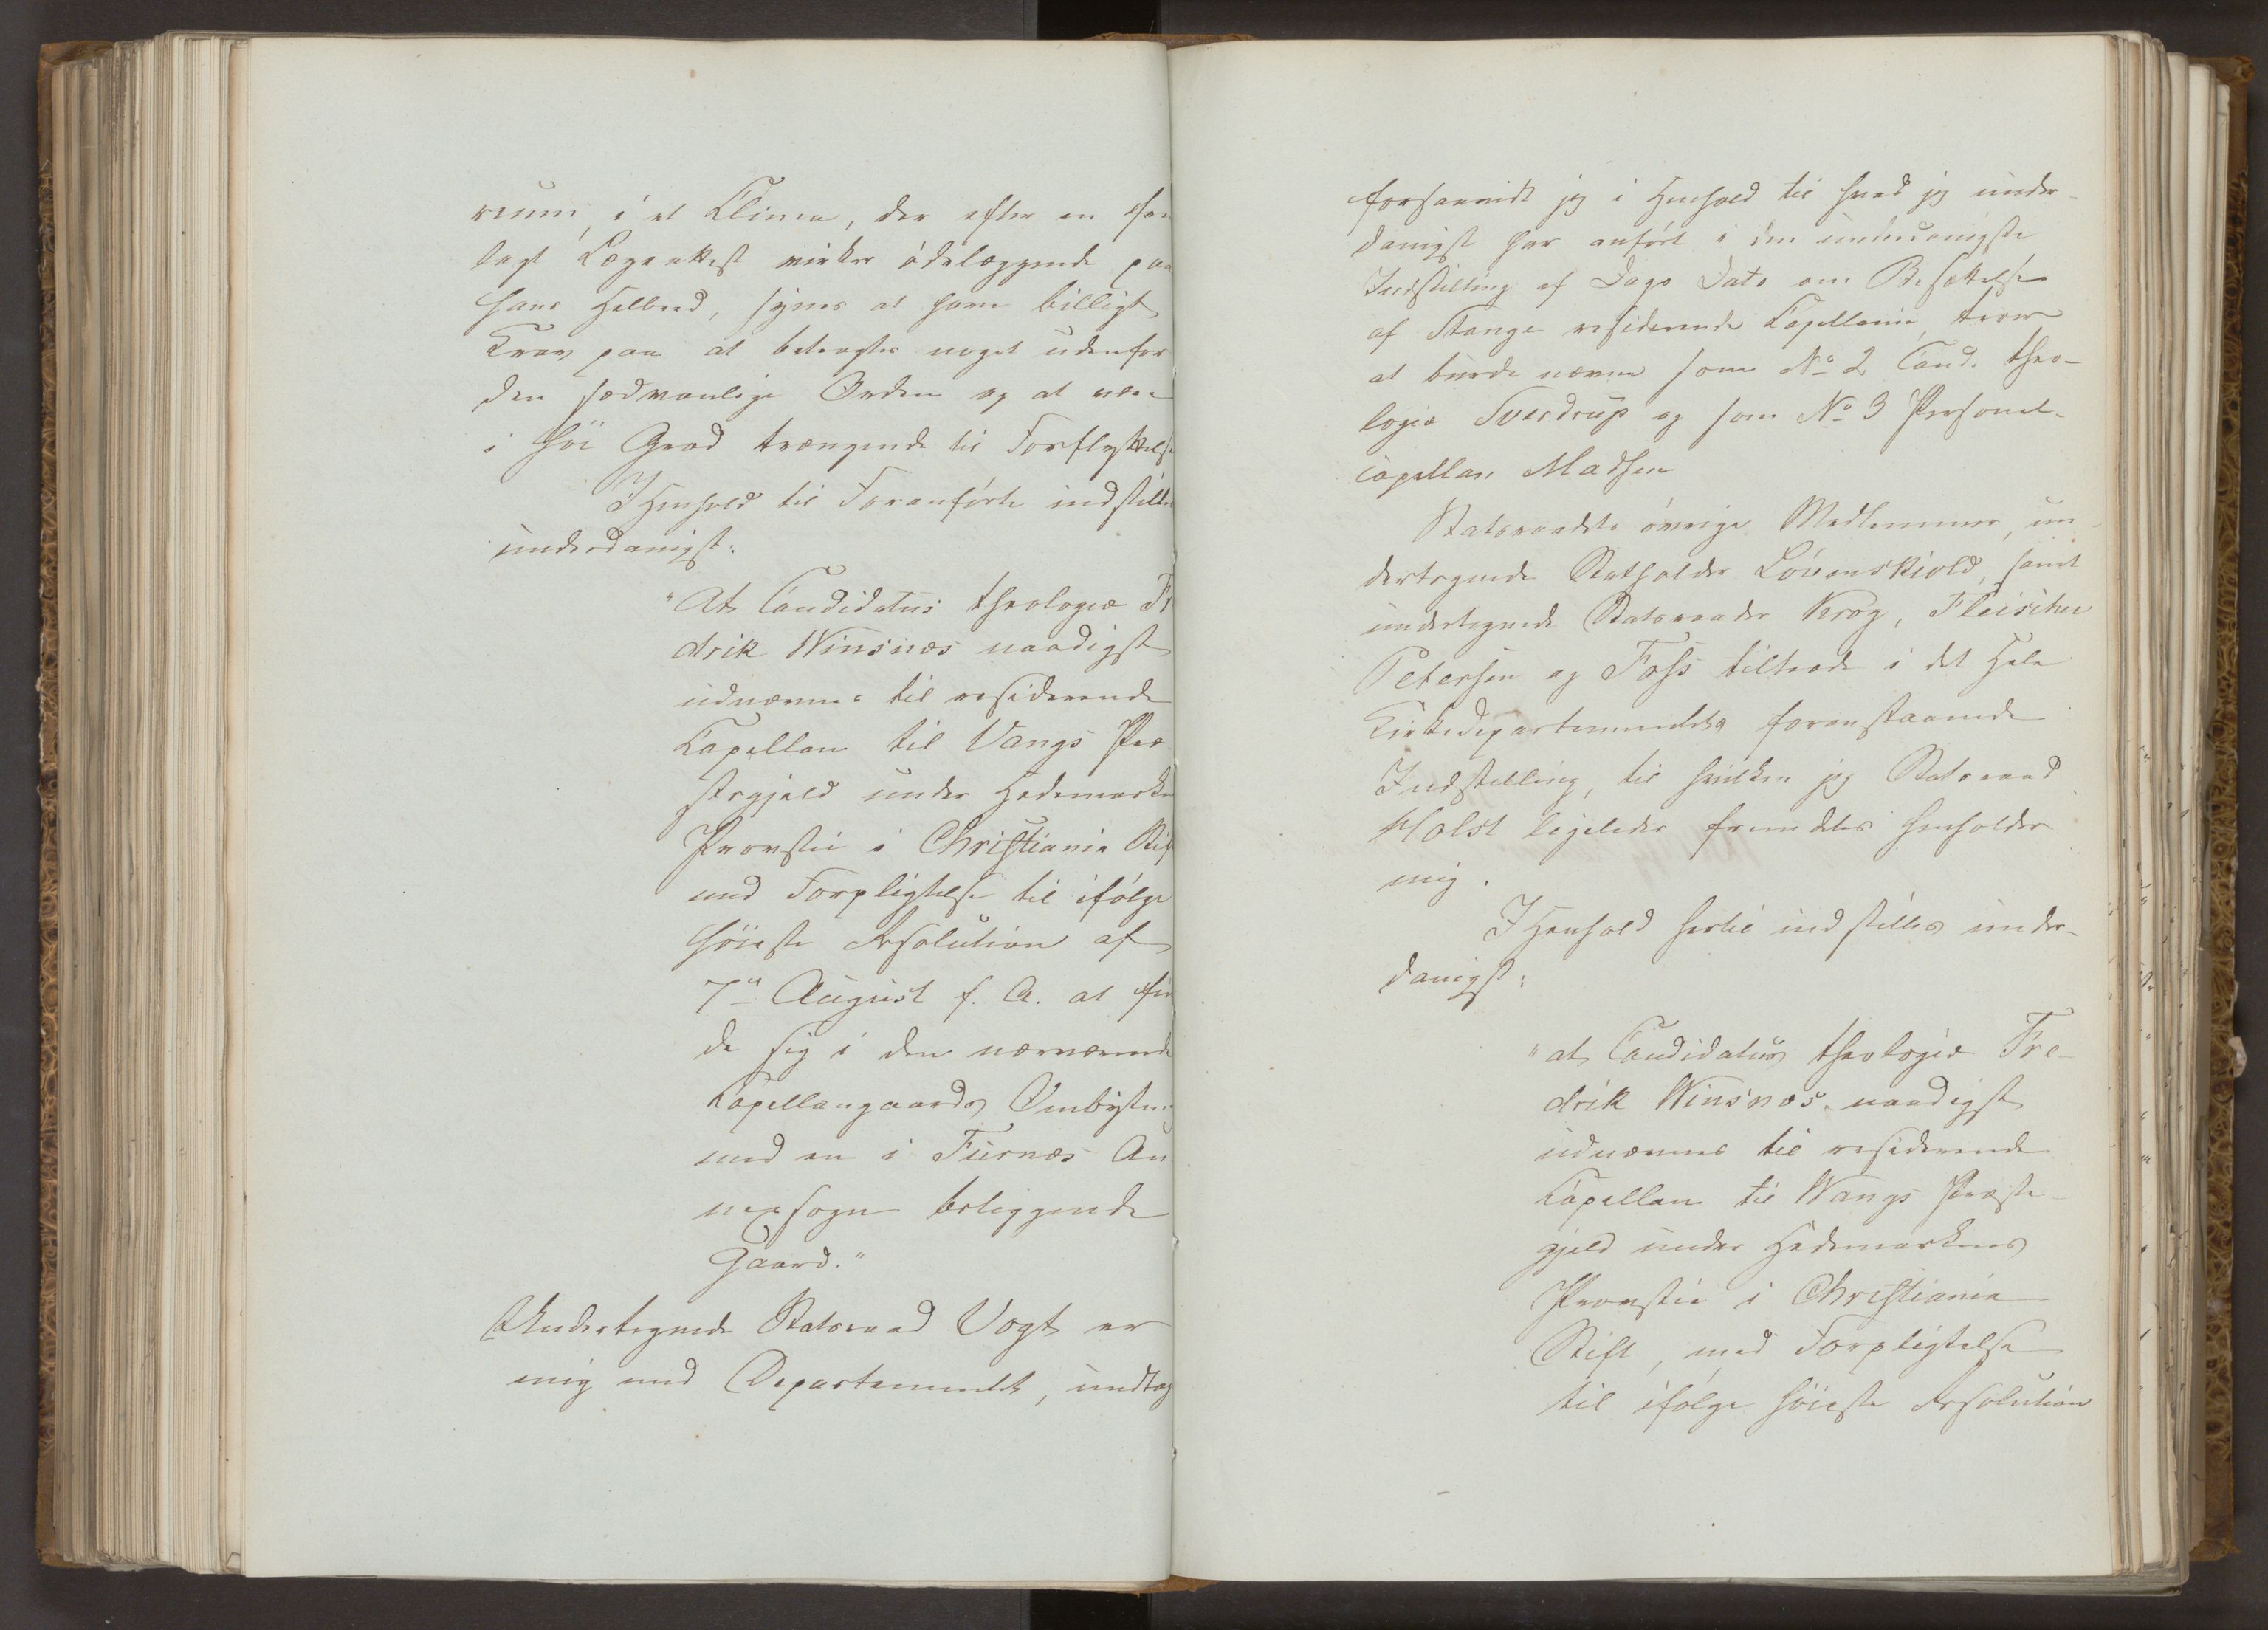 rium, i et Klima, der efter en frem
lagt Lægeattest virker ödelæggende paa
hans Helbred, synes at have billigt
Krav paa at betragtes noget udenfor
den sædvanlige Orden og at være
i höi Grad trængende til Forflyttelse
I Henhold til Foranförte indstilles
underdanigst:
"At Candidatus theologiæ Fr
drik Winsnes naadigst
udnævnes til residerende
Capellan til Vangs Præ
stegjeld under Hedemarkens
Provstie i Christiania Stif
med Forpligtelse til ifölge
höieste Resolution af
7de August f. A. at fin
de sig i den nærværende
Capellangaards Ombytning
med en i Furnæs An
nexsogn beliggende
Gaard."
Undertegnede Statsraad Vogt er
enig med Departementet, undtag
forsaavidt jeg i Henhold til hvad jeg under-
danigst har anfört i den underdanigste
Indstilling af Dags Dato om Besættelse
af Stange residerende Capellanie, troer
at burde nævne som No 2 Cand. theo-
logiæ Sverdrup og som No 3 Personel-
capellan Madsen
Statsraadets övrige Medlemmer, un-
dertegnede Statholder Lövenskiold, samt
undertegnede Statsraader Krog, Fleischer
Petersen og Foss tiltræde i det Hele
Kirkedepartementets foranstaaende
Indstilling, til hvilken jeg Statsraad
Holst ligeledes fremdeles henholder
mig.
I Henhold hertil indstilles under-
danigst:
"at Candidatus theologiæ Fre-
drik Winsnes naadigst
udnævnes til residerende
Capellan til Wangs Præste-
gjeld under Hedemarkens
Provstie i Christiania
Stift, med Forpligtelse
til ifölge höieste Resolution